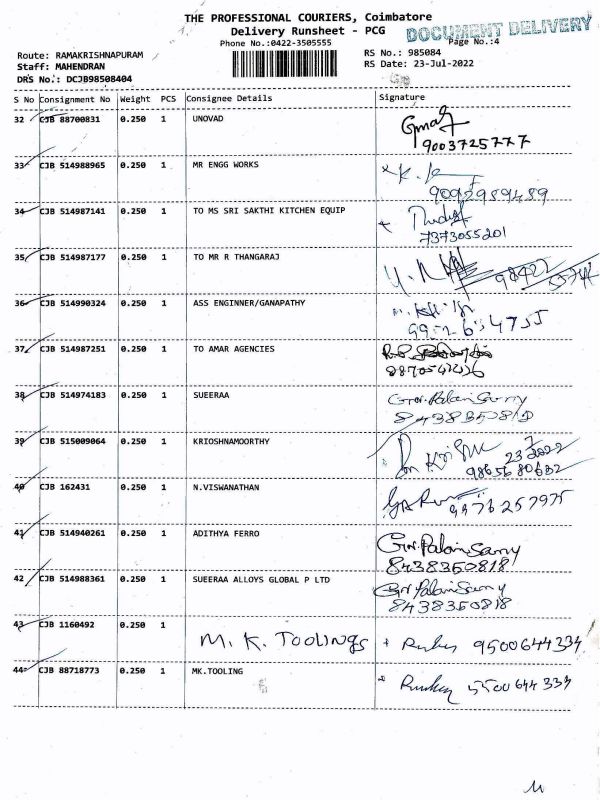 THE PROFESSIONAL COURIERS, Coimbatore
Delivery Runsheet - PCG
DOCUMENT DELIVERY
Phone No.:0422-3505555
Page No.:4
Route: RAMAKRISHNAPURAM
RS No.: 985084
Staff: MAHENDRAN
RS Date: 23-Jul-2022
DRS No.: DCJB98508404
S No Consignment No Weight PCS Consignee Details Signature
32 CJB 88700831 0.250 1 UNOVAD
9003725777
33 CJB 514988965 0.250 1 MR ENGG WORKS
9092989489
34 CJB 514987141 0.250 1 TO MS SRI SAKTHI KITCHEN EQUIP
7373055201
35 CJB 514987177 0.250 1 TO MR R THANGARAJ
36 CJB 514990324 0.250 1 ASS ENGINNER/GANAPATHY
37 CJB 514987251 0.250 1 TO AMAR AGENCIES
38 CJB 514974183 0.250 1 SUEERAA
Palani Samy
39 CJB 515009064 0.250 1 KRIOSHNAMOORTHY
9865680632
40 CJB 162431 0.250 1 N.VISWANATHAN
9976257975
41 CJB 514940261 0.250 1 ADITHYA FERRO
Palani Samy
8438350818
42 CJB 514988361 0.250 1 SUEERAA ALLOYS GLOBAL P LTD
Palani Samy
8438350818
43 CJB 1160492 0.250 1 M. K. TOOLINGS 9500644334
44 CJB 88718773 0.250 1 MK.TOOLING 5500644334